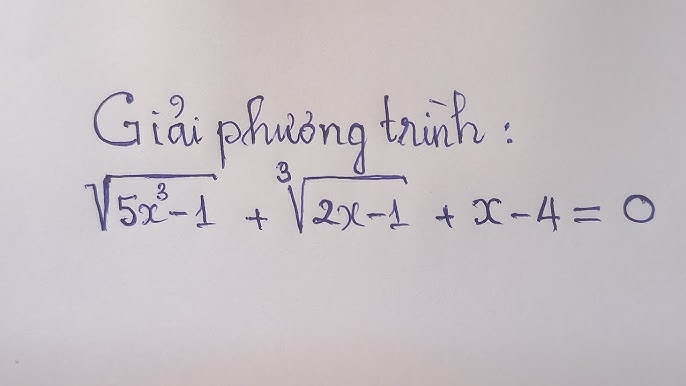 Giải phương trình :
√(5x³-1) + ∛(2x-1) + x-4 = 0